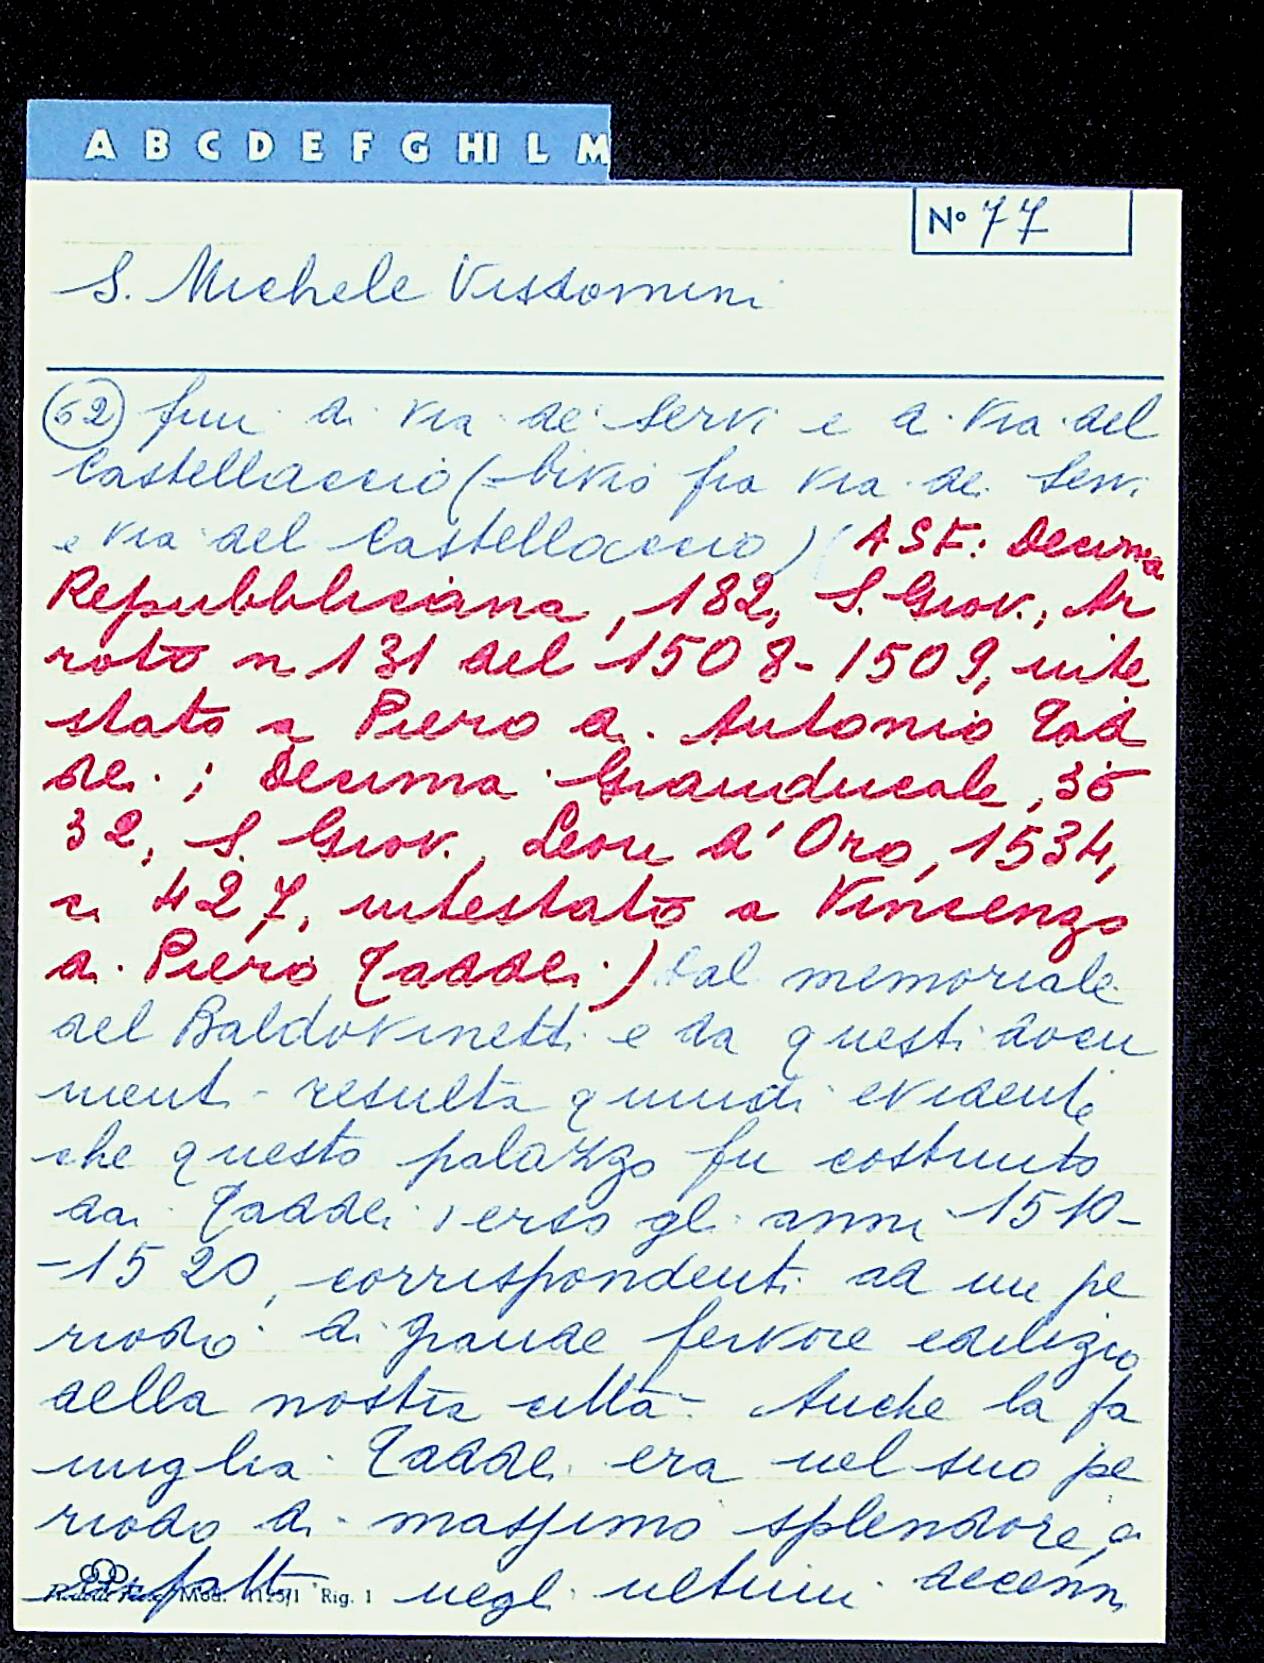 A B C D E F G HI L M
N° 77
S. Michele Visdomini
(62) fini di via de' Servi e di via del
Castellaccio (= bivio fra via dei Servi
e via del Castellaccio) (ASF: Decima
Repubblicana, 182, S. Giov., Ar
roto n 131 del 1508-1509, inte
stato a Piero di Antonio Tad
dei; Decima Granducale, 36
32, S. Giov., Leon d'Oro, 1534,
c. 427, intestato a Vincenzo
di Piero Taddei.) Dal memoriale
del Baldovinetti e da questi docu
menti - resulta quindi evidente
che questo palazzo fu costruito
dai Taddei verso gli anni 1510-
-1520, corrispondenti ad un pe
riodo di grande fervore edilizio
della nostra città. Anche la fa
miglia Taddei era nel suo pe
riodo di massimo splendore, e
infatti negli ultimi decenni
Mod. Rig. 1